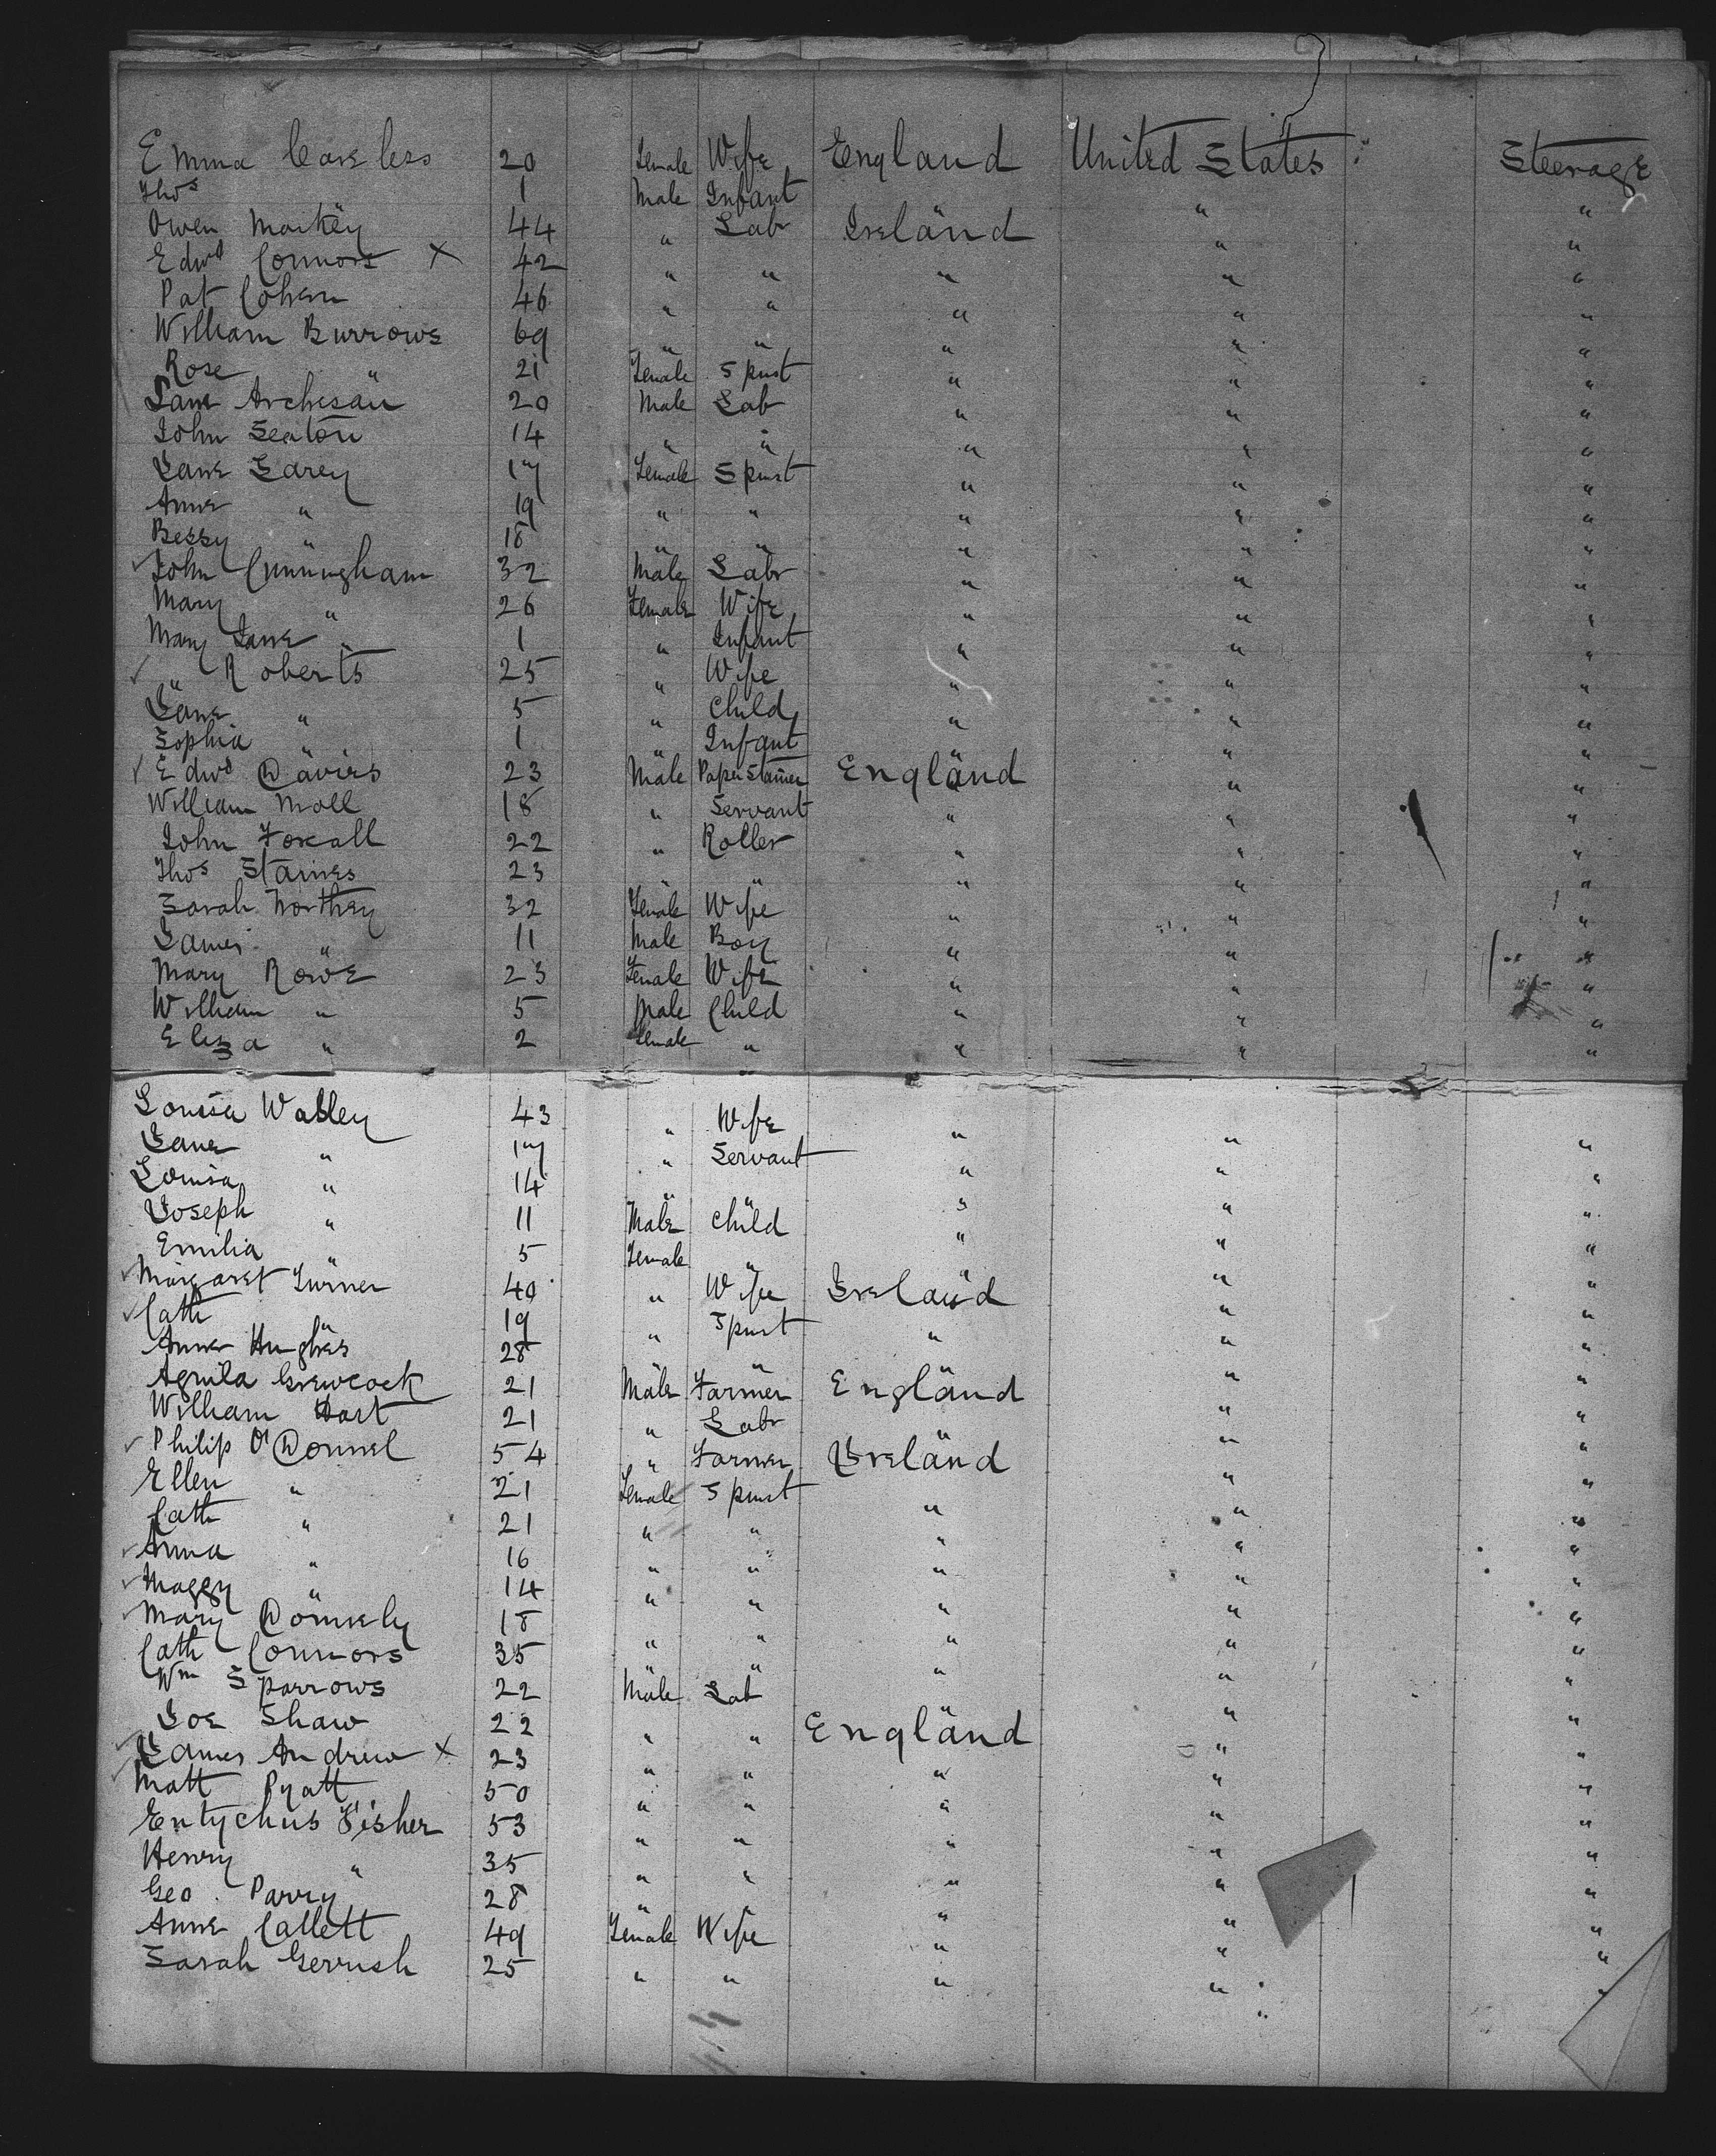 Emma Careless 20 Female Wife England United States Steerage
Thos " 1 Male Infant " "
Owen Markey 44 " Lab Ireland " "
Edwd Connors X 42 " " " " "
Pat Cohen 46 " " " " "
William Burrows 69 " " " " "
Rose " 21 Female Spinst " " "
Sam Archesan 20 Male Lab " " "
John Seaton 14 " " " " "
Jane Carey 17 Female Spinst " " "
Anne " 19 " " " " "
Bessy " 18 " " " " "
John Cunningham 32 Male Labr " " "
Mary " 26 Female Wife " " "
Mary Jane " 1 " Infant " " "
" Roberts 25 " Wife " " "
Jane " 5 " Child " " "
Sophia " 1 " Infant " " "
Edwd Davies 23 Male Paper Stainer England " "
William Moll 18 " Servant " " "
John Foxall 22 " Roller " " "
Thos Staines 23 " " " " "
Sarah Northey 32 Female Wife " " "
James " 11 Male Boy " " "
Mary Rowe 23 Female Wife " " "
William " 5 Male Child " " "
Eliza " 2 Female " " " "
Louisa Walley 43 " Wife " " "
Jane " 17 " Servant " " "
Louisa " 14 " " " " "
Joseph " 11 Male Child " " "
Emilia " 5 Female " " " "
Margaret Turner 40 " Wife Ireland " "
Cath " 19 " Spinst " " "
Anne Hughes 28 " " " " "
Aquila Grewcock 21 Male Farmer England " "
William Hart 21 " Labr " " "
Philip O'Donnel 54 " Farmer Ireland " "
Ellen " 21 Female Spinst " " "
Cath " 21 " " " " "
Anna " 16 " " " " "
Maggy " 14 " " " " "
Mary Donnely 18 " " " " "
Cath Connors 35 " " " " "
Wm Sparrows 22 Male Lab " " "
Joe Shaw 22 " " England " "
James Andrew X 23 " " " " "
Matt Pyatt 50 " " " " "
Eutychus Fisher 53 " " " " "
Henry " 35 " " " " "
Geo. Parry 28 " " " " "
Anne Callett 49 Female Wife " " "
Sarah Gerrish 25 " " " " "